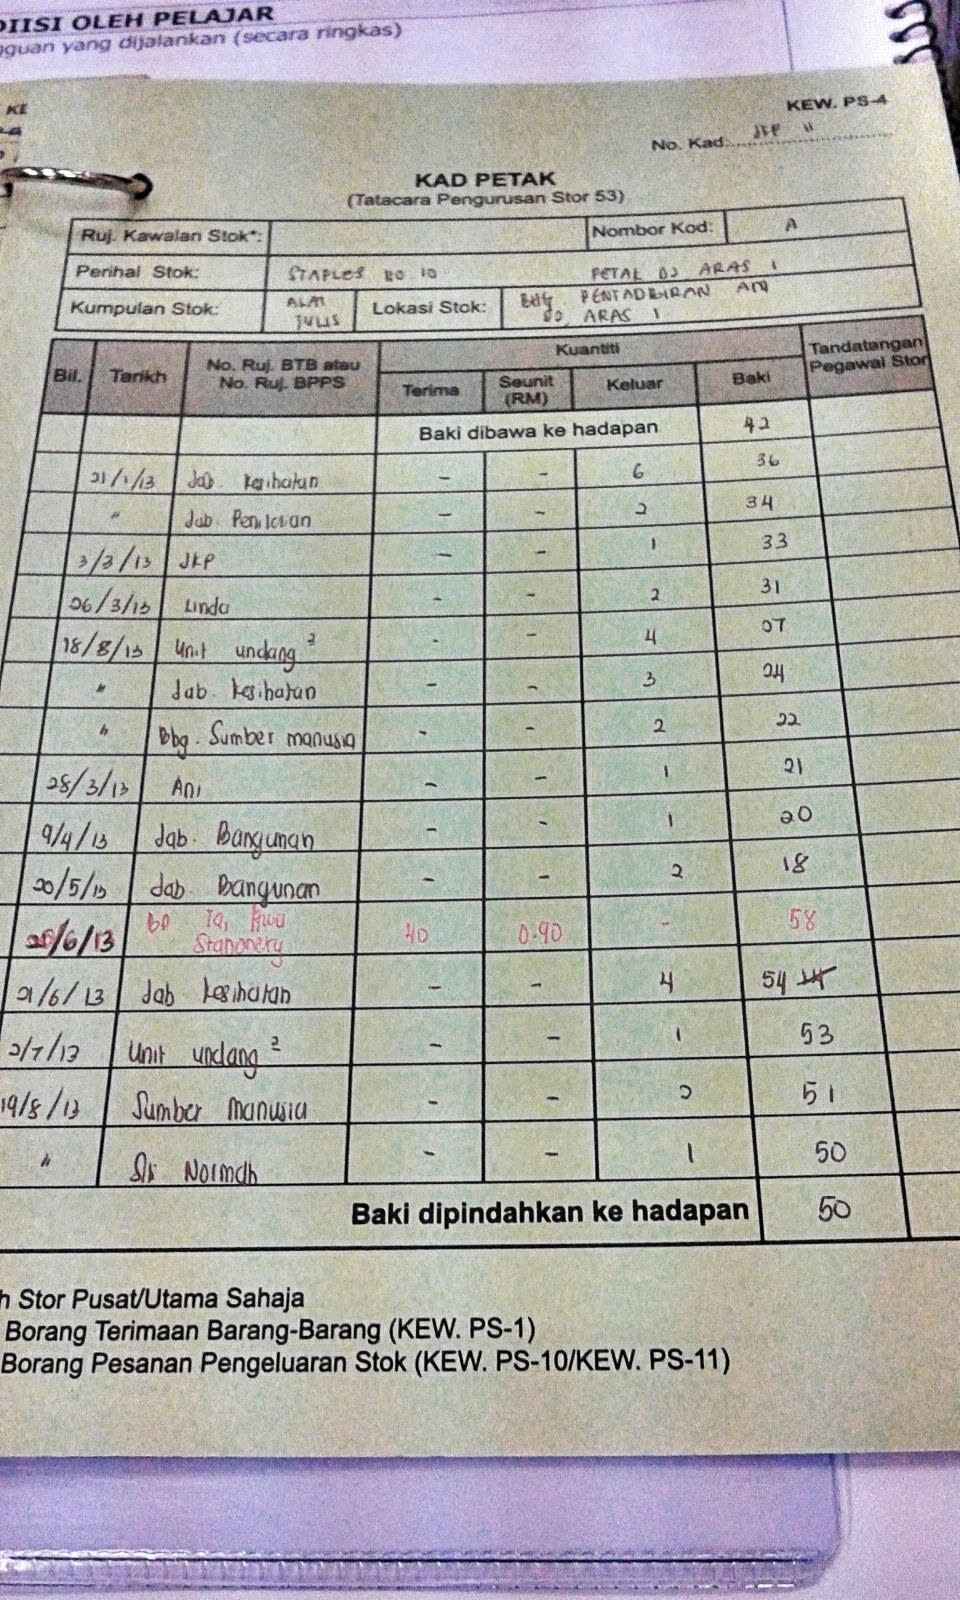 DIISI OLEH PELAJAR
gguan yang dijalankan (secara ringkas)
KE
KEW. PS-4
No. Kad: JKP 11
KAD PETAK
(Tatacara Pengurusan Stor 53)
Ruj. Kawalan Stok*: Nombor Kod: A
Perihal Stok: STAPLES NO 10 PETAK 02 ARAS 1
Kumpulan Stok: ALAT TULIS Lokasi Stok: BHG PENTADBIRAN AM
02, ARAS 1
Bil. Tarikh No. Ruj. BTB atau No. Ruj. BPPS Kuantiti Tandatangan Pegawai Stor
Terima Seunit (RM) Keluar Baki
Baki dibawa ke hadapan 42
21/1/13 Jab. Kesihatan - - 6 36
" Jab. Penilaian - - 2 34
3/3/13 JKP - - 1 33
26/3/13 Linda - - 2 31
18/8/13 Unit undang 2 - - 4 27
" Jab. Kesihatan - - 3 24
" Bhg. Sumber manusia - - 2 22
28/3/13 Ani - - 1 21
9/4/13 Jab. Bangunan - - 1 20
20/5/13 Jab. Bangunan - - 2 18
/6/13 Stationery 40 0.90 - 58
21/6/13 Jab Kesihatan - - 4 54
2/7/13 Unit undang 2 - - 1 53
19/8/13 Sumber Manusia - - 2 51
" Normah - - 1 50
Baki dipindahkan ke hadapan 50
h Stor Pusat/Utama Sahaja
Borang Terimaan Barang-Barang (KEW. PS-1)
Borang Pesanan Pengeluaran Stok (KEW. PS-10/KEW. PS-11)